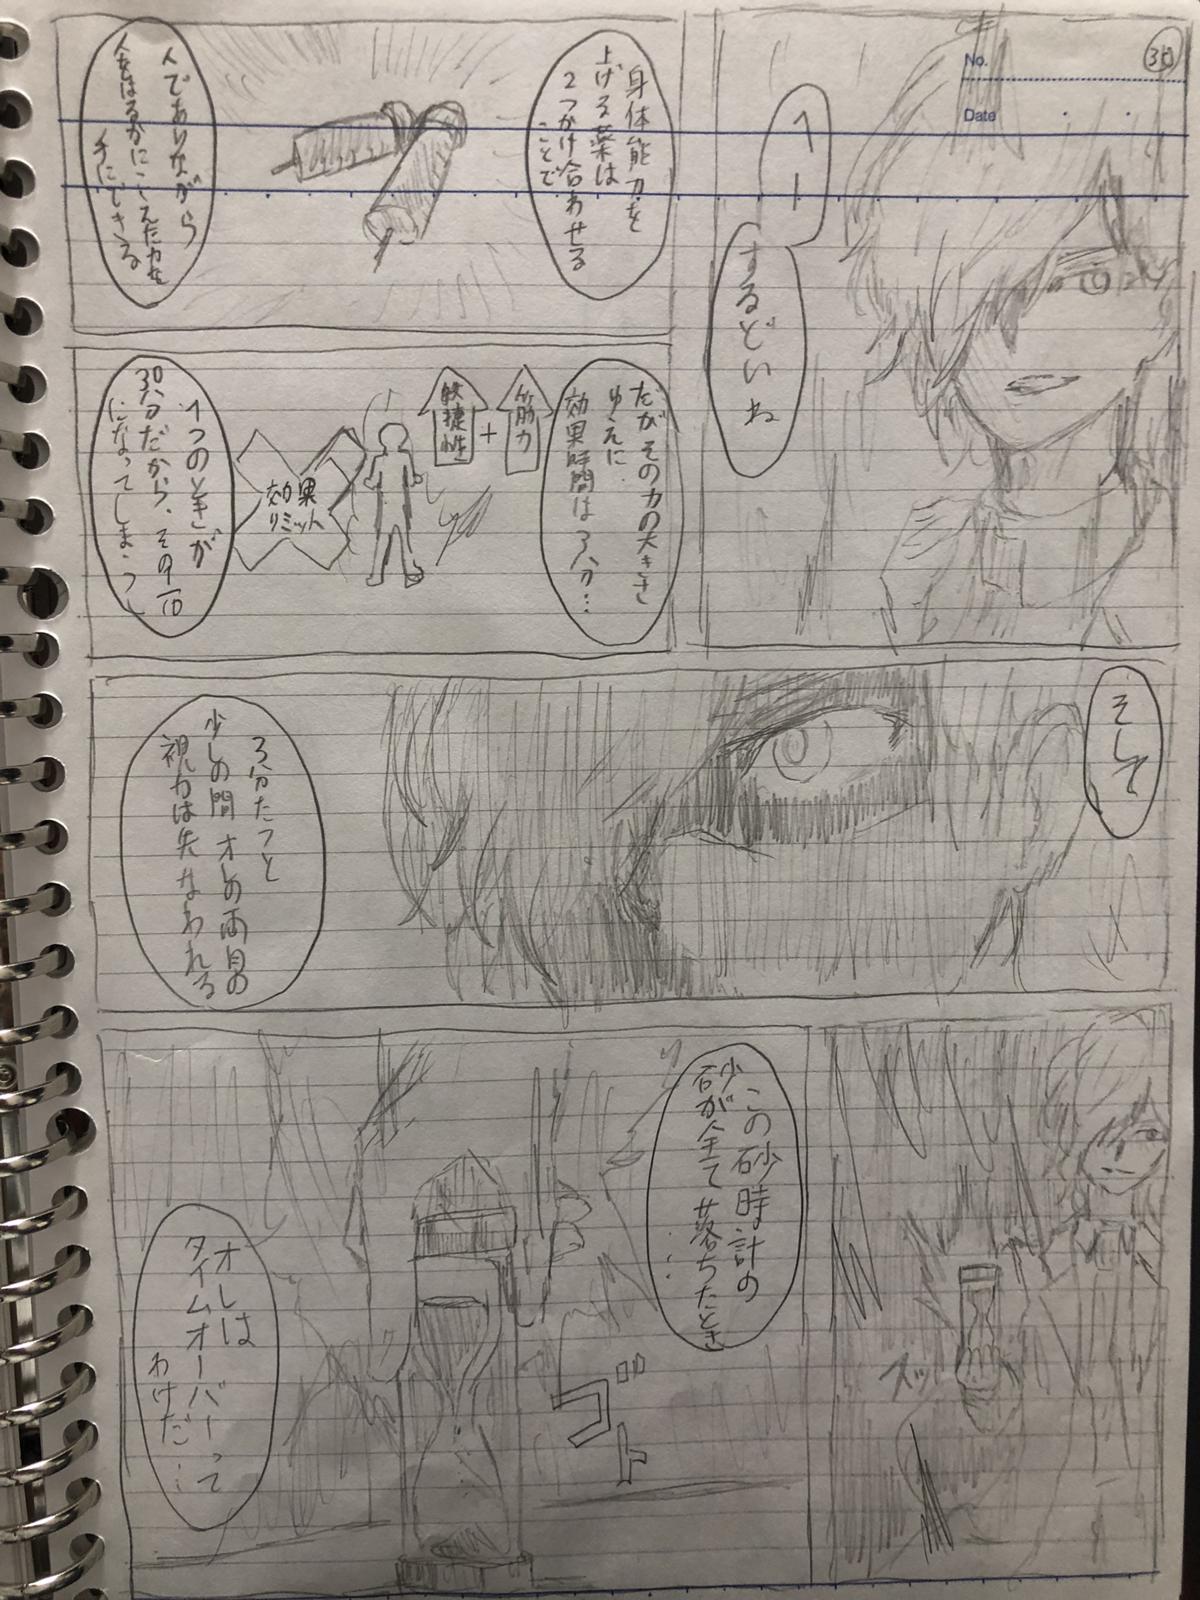 36
No.
Date
へー
するどいね
身体能力を
上げる薬は
2つかけ合わせる
ことで
人でありながら
人をはるかにこえた力を
手にできる
だがその力の大きさ
ゆえに
効果時間は3分…
筋力
+
敏捷性
効果
リミット
1つのときが
30分だから、その1/10
になってしまう
そして
3分たつと
少しの間オレの両目の
視力は失なわれる
スッ
この砂時計の
砂が全て落ちたとき
…
ゴト
オレは
タイムオーバーって
わけだ…